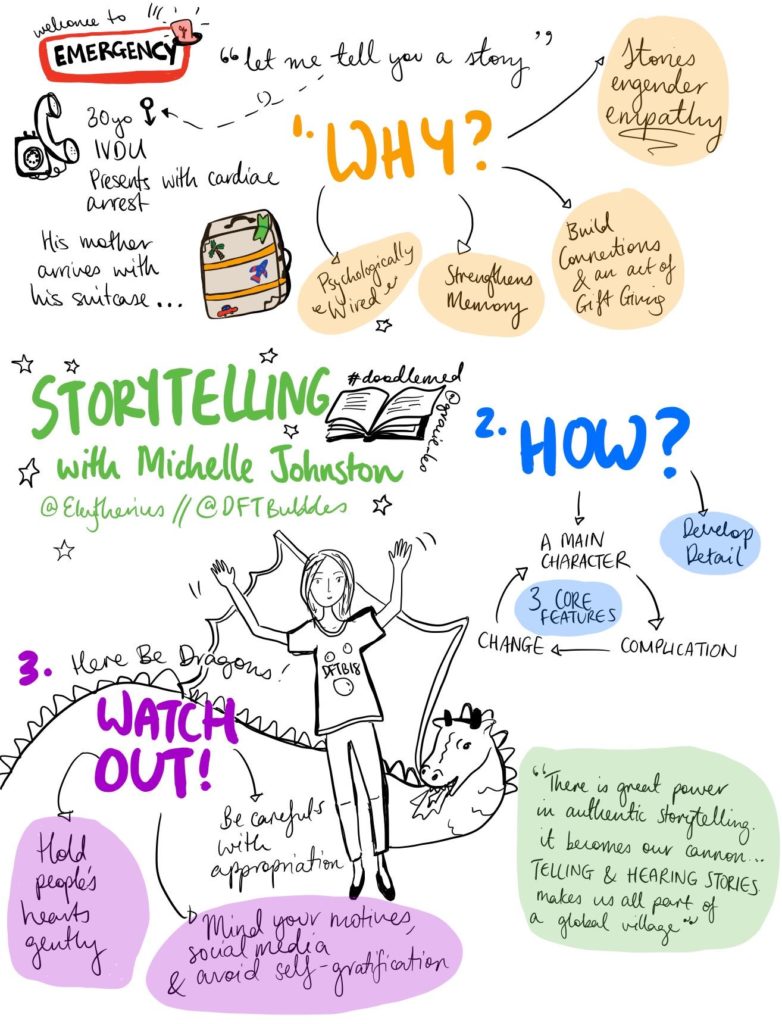 welcome to
EMERGENCY
"let me tell you a story"
30yo
IVDU
Presents with cardiac
arrest
His mother
arrives with
his suitcase...
1. WHY?
Stories
engender
empathy
Psychologically
Wired
Strengthens
Memory
Build
Connections
& an act of
Gift Giving
STORYTELLING
with Michelle Johnston
@Eleytherius // @DFTBubbles
#doodlemed
@gracie_leo
2. HOW?
A MAIN
CHARACTER
COMPLICATION
CHANGE
3 CORE
FEATURES
Develop
Detail
3. Here Be Dragons!
WATCH
OUT!
DFTB18
Hold
people's
hearts
gently
Be carefuls
with
appropriation
Mind your motives,
social media
& avoid self-gratification
"There is great power
in authentic storytelling.
it becomes our cannon...
TELLING & HEARING STORIES
makes us all part of
a global village"